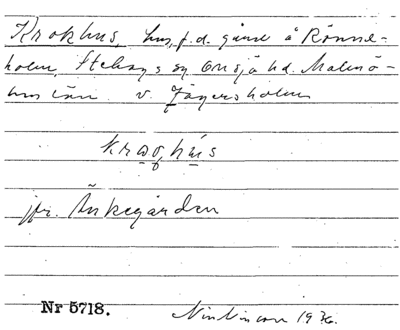 Krokhus, hus, f.d. gård å Rönne-
holm, Stehags sn Onsjö hd. Malmö-
hus län. v. Jägersholm
kraǫ,hús
jfr. Änkegården
Nr 5718. 1936.